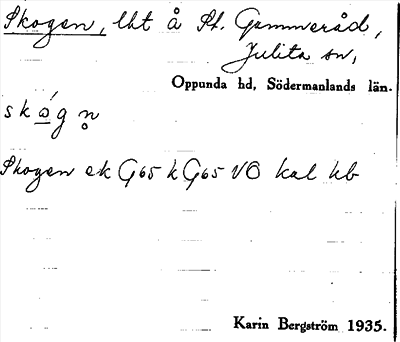 Skogen, lht å St. Gammeråd,
Julita sn,
Oppunda hd, Södermanlands län.
skǫ́gn̥
Skogen ek G65 k G65 VO kal kb
Karin Bergström 1935.